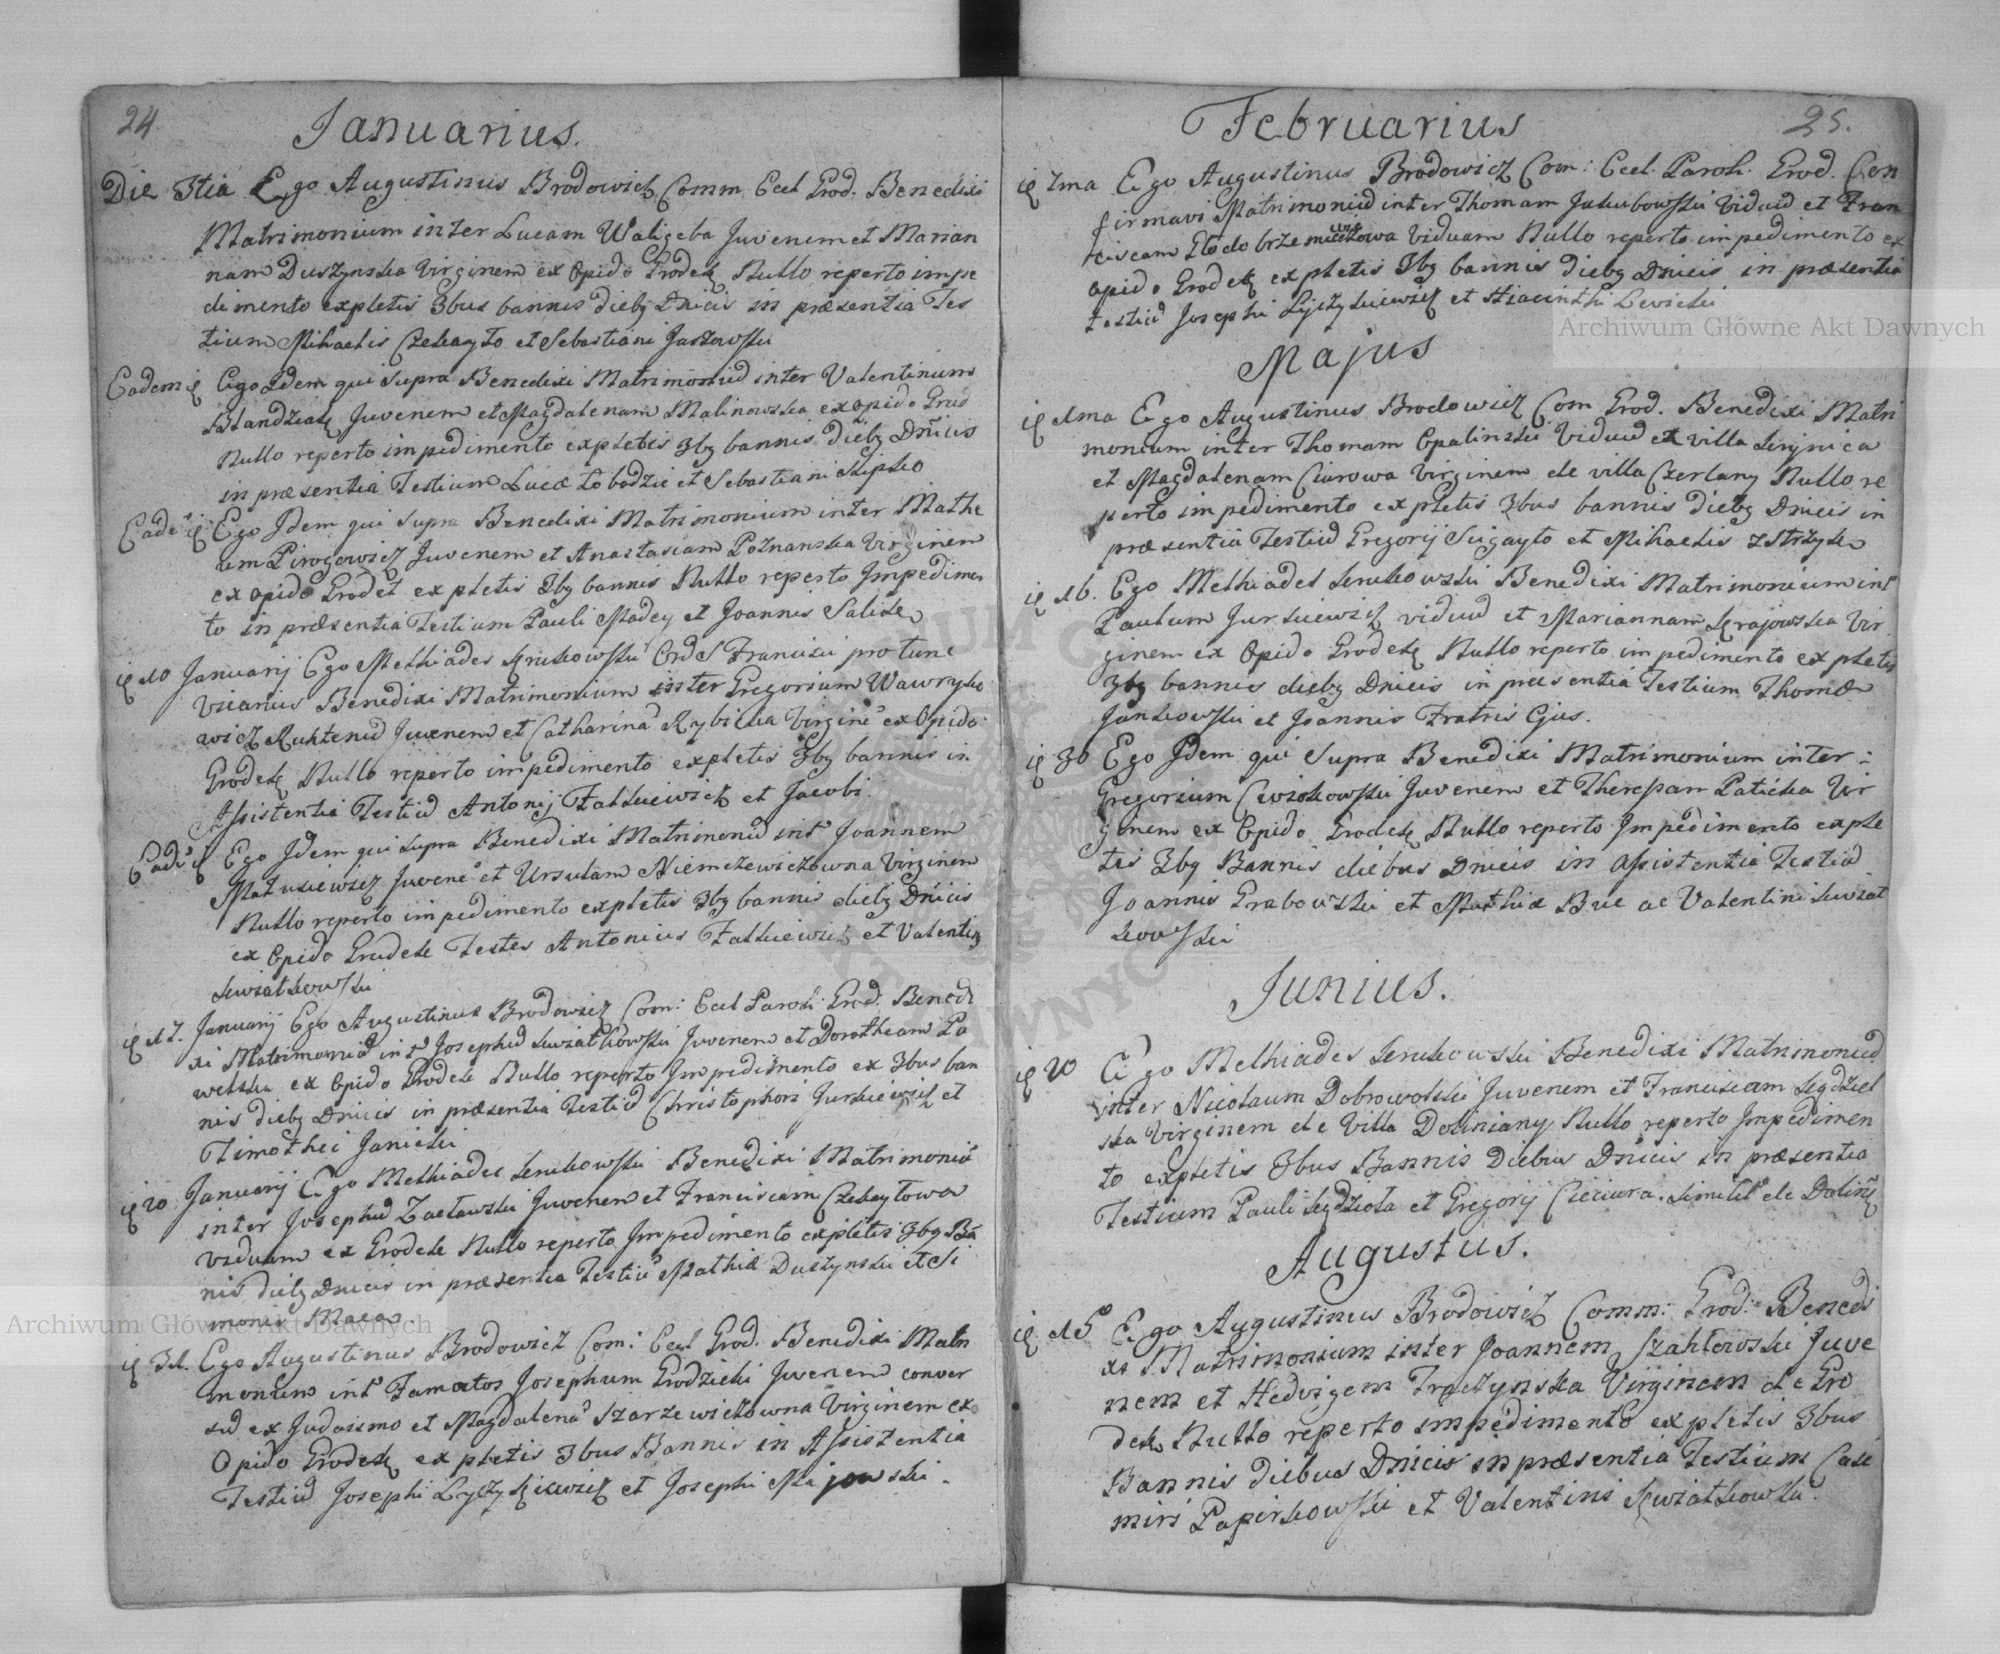 24
Januarius.
Die 3tia Ego Augustinus Brodowicz Comm Eccl Grod. Benedixi
Matrimonium inter Lucam Waligeba Juvenem et Marian
nam Duszynska Virginem ex Opido Grodek Nullo reperto impe
dimento expletis 3bus bannis dieb9 Dnicis in præsentia Tes
tium Mihaelis Czekayło et Sebastiani Jaszowski
Eadem Ego Idem qui supra Benedixi Matrimoniu inter Valentinum
Juvenem et Magdalenam Malinowska ex opido Grod
Nullo reperto impedimento expletis 3b9 bannis dieb9 Dnicis
in præsentia Testium Lucæ Łobodzic et Sebastiani Skipko
Ego Idem qui supra Benedixi Matrimonium inter Mathe
um Pirogowicz Juvenem et Anastasiam Poznanska Virginem
ex opido Grodek expletis 3b9 bannis Nullo reperto Impedimen
to in præsentia Testium Pauli Madey et Joannis Salick
10 Januarij Ego Melhiades Ord S Francisci pro tunc
Vicarius Benedixi Matrimonium inter Gregorium Wawryko
wicz Juvenem et Catharina Rybicka Virgine ex Opido
Grodek Nullo reperto impedimento expletis 3b9 bannis in
Assistentia Testiu Antonij Falkiewicz et Jacobi
Ego Idem qui supra Benedixi Matrimoniu int Joannem
Matusiewicz Juvene et Ursulam Niemczewiczowna Virginem
Nullo reperto impedimento expletis 3b9 bannis dieb9 Dnicis
ex Opido Grodek Testes Antonius Falkiewicz et Valentin9
Kwiatkowski
17. Januarij Ego Augustinus Brodowicz Com: Eccl Paroh: Grod. Benedi
xi Matrimoniu int Josephu Kwiatkowski Juvenem et Dorotheam Pa
welska ex Opido Grodek Nullo reperto Impedimento ex 3bus ban
nis dieb9 Dnicis in præsentia Testiu Christophori Jurkiewicz et
Timothei Janicki
20 Januarij Ego Melhiades Benedixi Matrimoniu
inter Josephu Zacławski Juvenem et Franciscam Czekayłowa
viduam ex Grodek Nullo reperto Impedimento expletis 3b9 Ba
nis dieb9 Dnicis in præsentia Testiu Mathiæ Duszynski et Si
monis
31. Ego Augustinus Brodowicz Com: Eccl Grod. Benedixi Matri
monium int Famatos Josephum Grodzicki Juvenem conver
su ex Judaismo et Magdalena Szarzewiczowna Virginem ex
Opido Grodek expletis 3bus Bannis in Assistentia
Testiu Josephi et Josephi Majowski.
25.
Februarius
7ma Ego Augustinus Brodowicz Com: Eccl. Paroh. Grod. Con
firmavi Matrimoniu inter Thomam Jakubowski Viduu et Fran
ciscam Viduam Nullo reperto impedimento ex
opido Grodek expletis 3b9 bannis dieb9 Dnicis in præsentia
testiu Josephi et Hiacinthi Levicki
Majus
1ma Ego Augustinus Brodowicz Com Grod. Benedixi Matri
monium inter Thomam Opalinski Viduu ex villa
et Magdalenam Ciurowa Virginem de villa Czerlany Nullo re
perto impedimento expletis 3bus bannis dieb9 Dnicis in
præsentia Testiu Gregorij Sugayło et Mihaelis
16. Ego Melhiades Benedixi Matrimonium int
Paulum Jurkiewicz viduu et Mariannam Krajowska Vir
ginem ex Opido Grodek Nullo reperto impedimento expletis
3b9 bannis dieb9 Dnicis in præsentia Testium Thomæ
Jankowski et Joannis Fratris Ejus.
30 Ego Idem qui supra Benedixi Matrimonium inter
Gregorium Juvenem et Theresam Paticka Vir
ginem ex Opido Grodek Nullo reperto Impedimento exple
tis 3b9 Bannis diebus Dnicis in Assistentia Testiu
Joannis Grabowski et Mathiæ Buc ac Valentini Kwiat
kowski
Junius.
20 Ego Melhiades Benedixi Matrimoniu
inter Nicolaum Dobrowolski Juvenem et Franciscam Kądziel
ska Virginem de Villa Doliniany Nullo reperto Impedimen
to expletis 3bus Bannis Diebus Dnicis in præsentia
Testium Pauli et Gregorij Cieciura. Simili de
Augustus.
15 Ego Augustinus Brodowicz Comm: Grod: Benedi
xi Matrimonium inter Joannem Szahłowski Juve
nem et Hedvigem Traczynska Virginem de Gro
dek Nullo reperto impedimento expletis 3bus
Bannis diebus Dnicis in præsentia Testium Casi
miri Papirkowski et Valentini Kwiatkowski.
Archiwum Główne Akt Dawnych
Archiwum Główne Akt Dawnych